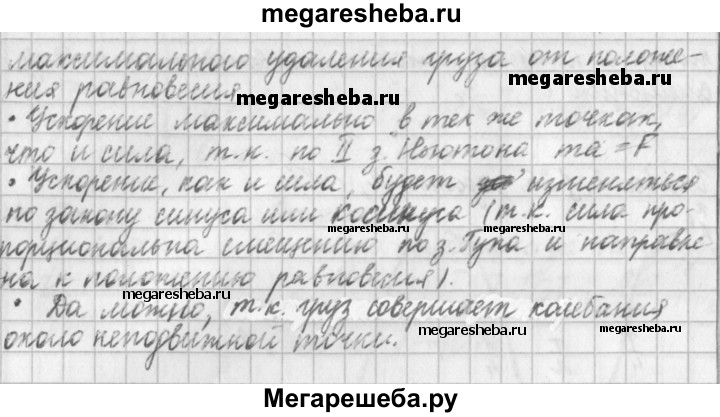 megaresheba.ru
максимального удаления груза от положе-
megaresheba.ru
ния равновесия
megaresheba.ru
• Ускорение максимально в тех же точках,
что и сила, т.к. по II з. Ньютона ma = F
• Ускорение, как и сила, будет изменяться
по закону синуса или косинуса (т.к. сила про-
порциональна смещению по з. Гука и направле-
megaresheba.ru
на к положению равновесия).
megaresheba.ru
• Да можно, т.к. груз совершает колебания
megaresheba.ru
около неподвижной точки.
Мегарешеба.ру